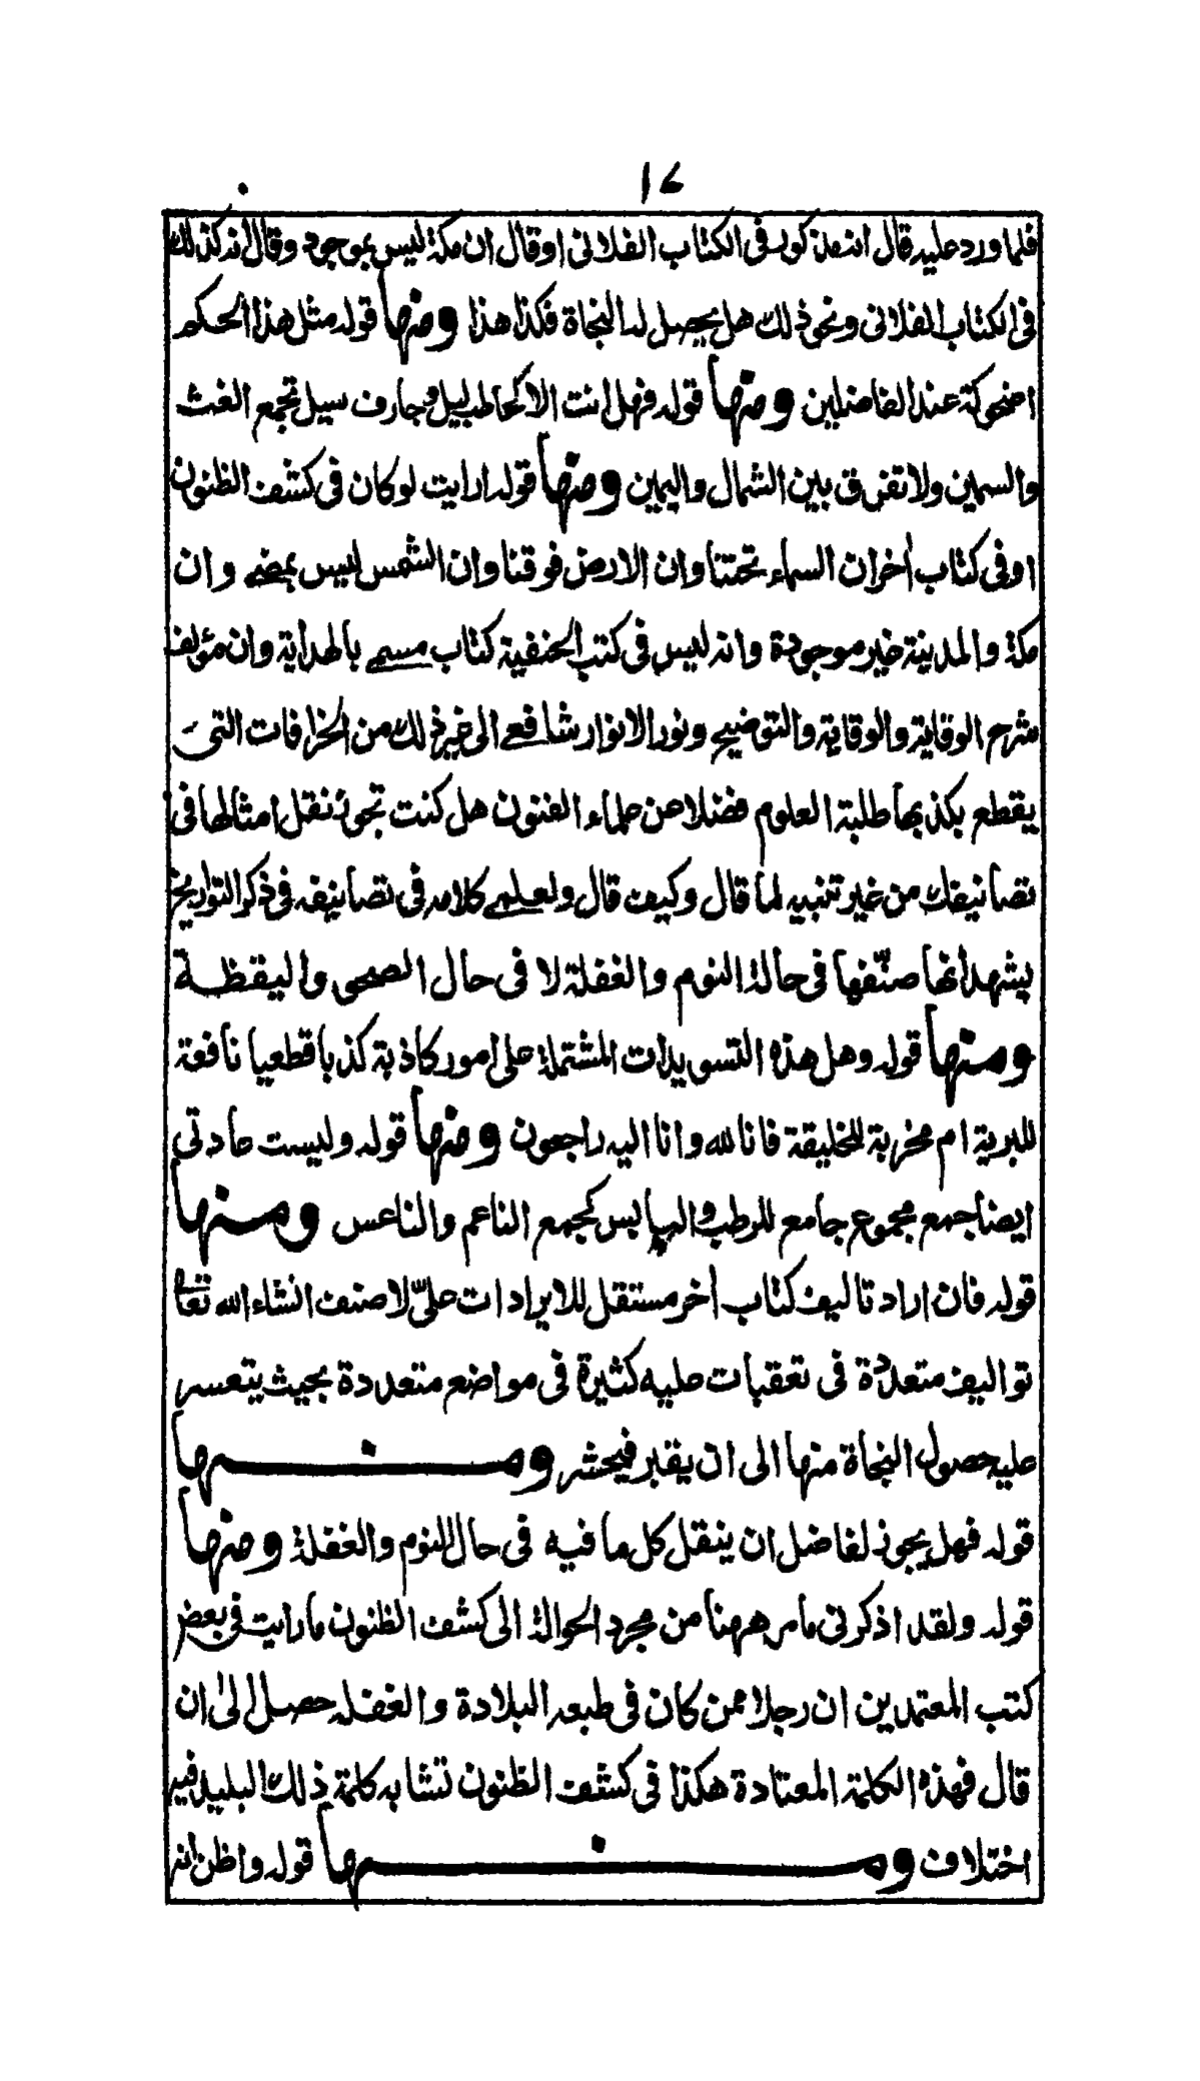 ١٧
فلما ورد عليه قال انه مذكور فى الكتاب الفلانى او قال ان مكة ليس بموجود وقال انه كذلك
فى الكتاب الفلانى ونحو ذلك هل يحصل له النجاة فكذا هذا ومنها قوله مثل هذا الحكم
اضحوكة عند الفاضلين ومنها قوله فهل انت الا كحاطب ليل وجارف سيل تجمع الغث
والسمين ولا تفرق بين الشمال واليمين ومنها قوله ارايت لو كان فى كشف الظنون
او فى كتاب اخر ان السماء تحتنا وان الارض فوقنا وان الشمس ليس بمضے وان
مكة والمدينة غير موجودة وانه ليس فى كتب الحنفية كتاب مسمے بالهداية وان مؤلف
شرح الوقاية والوقاية والتوضيح ونور الانوار شافعے الى غير ذلك من الخرافات التى
يقطع بكذبها طلبة العلوم فضلا عن علماء الفنون هل كنت تجوز نقل امثالها فى
تصانيفك من غير تنبيه لما قال وكيف قال ولعلمے كلامه فى تصانيفه فى ذكر التواريخ
يشهد انها صنّفها فى حالة النوم والغفلة لا فى حال الصحى واليقظة
ومنها قوله وهل هذه التسويدات المشتملة على امور كاذبة كذبا قطعيا نافعة
للبرية ام مخربة للخليقة فانا لله وانا اليه راجعون ومنها قوله وليست عادتي
ايضا جمع مجموع جامع للرطب واليابس كجمع الناعم والناعس ومنها
قوله فان اراد تاليف كتاب اخر مستقل للايرادات علىّ لاصنف انشاء الله تعالى
تواليف متعددة فى تعقبات عليه كثيرة فى مواضع متعددة بحيث يتعسر
عليه حصول النجاة منها الى ان يقبر فيحشر ومنها
قوله فهل يجوز لفاضل ان ينقل كل ما فيه فى حال النوم والغفلة ومنها
قوله ولقد اذكرنى مامر ههنا من مجرد الحوالة الى كشف الظنون ما رايت فى بعض
كتب المعتمدين ان رجلا ممن كان فى طبعه البلادة والغفله حصل الى ان
قال فهذه الكلمة المعتادة هكذا فى كشف الظنون تشابه كلمة ذلك البليد فيه
اختلاف ومنها قوله واظن انه